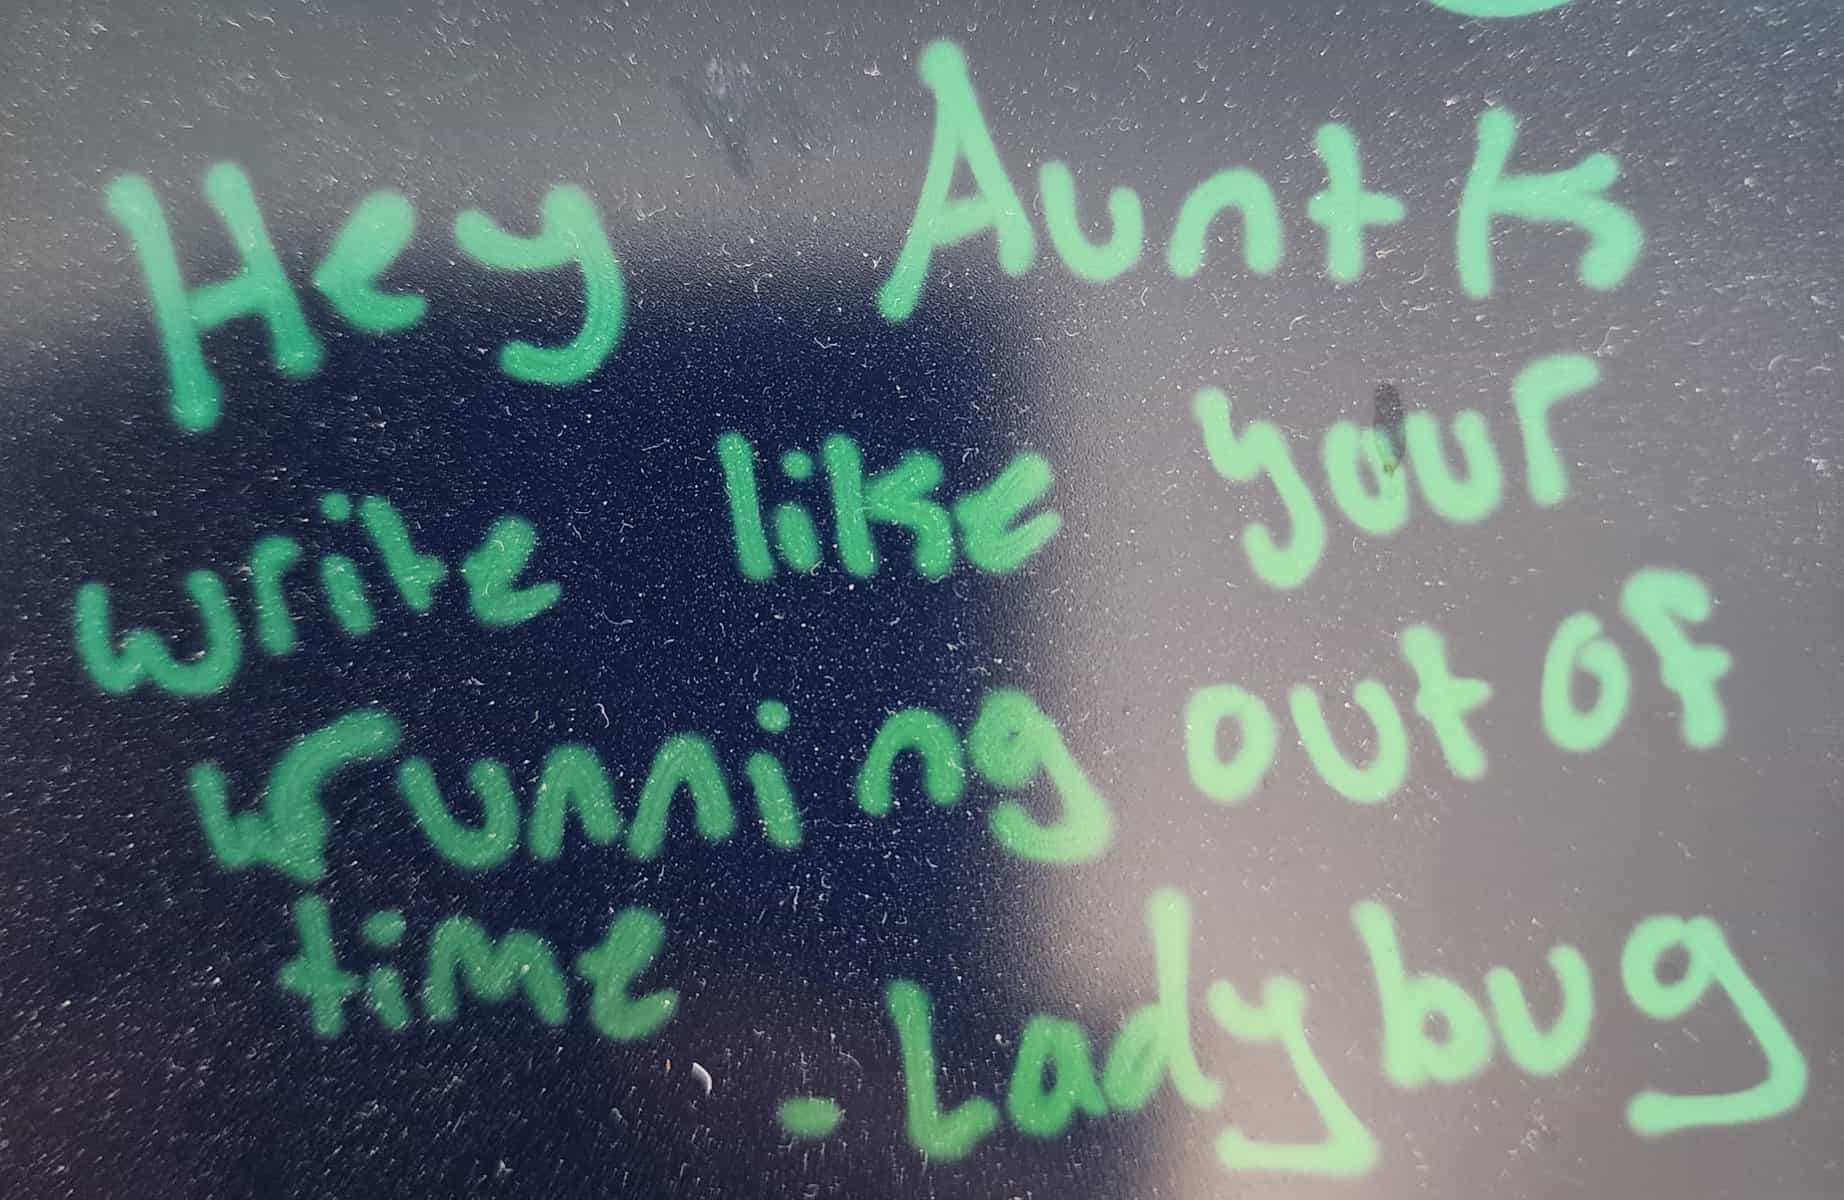 Hey Aunt K
write like your
running out of
time
-Ladybug